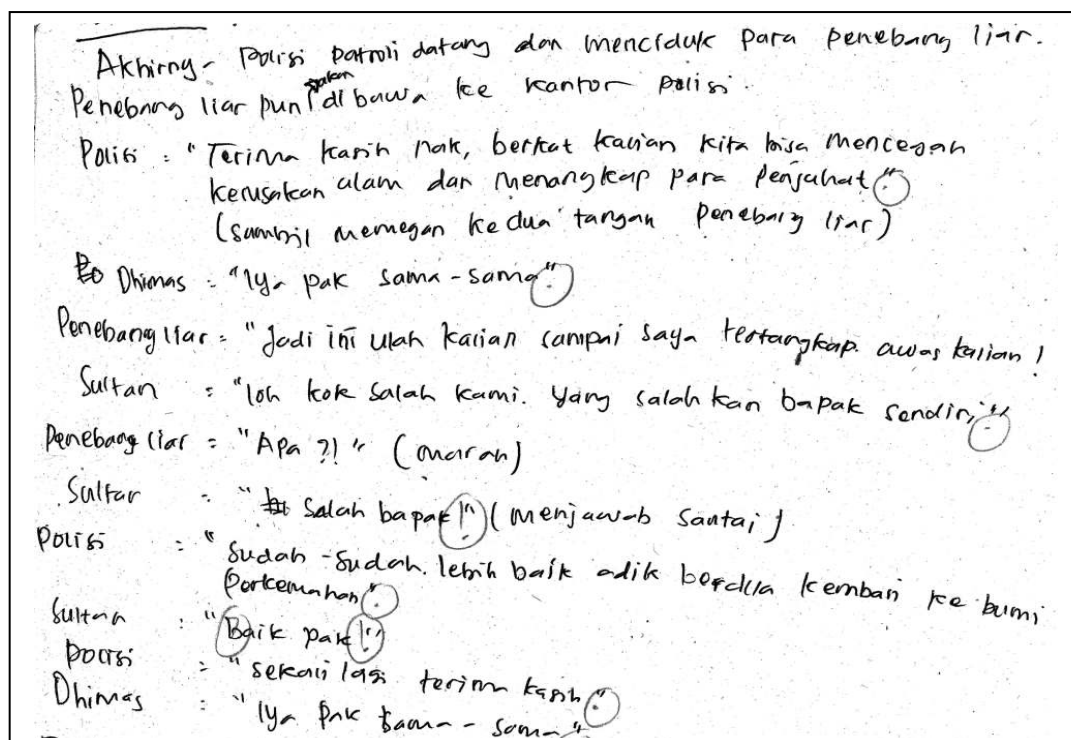 Akhirny- Polisi patroli datang dan menciduk para penebang liar.
Penebang liar pun di bawa ke kantor polisi.
Polisi : "Terima kasih nak, berkat kalian kita bisa mencegah
kerusakan alam dan menangkap para penjahat."
(sambil memegan kedua tangan penebang liar)
Dhimas : "Iya pak sama-sama."
Penebang liar : "Jadi ini ulah kalian sampai saya tertangkap. awas kalian!
Sultan : "loh kok salah kami. yang salah kan bapak sendiri."
Penebang liar : "Apa ?!" (marah)
Sultan : "Salah bapak!." (menjawab santai)
Polisi : "Sudah-sudah. lebih baik adik berdua kembali ke bumi
Perkemahan."
Sultan : "Baik pak!."
Polisi : "sekali lagi terima kasih."
Dhimas : "Iya pak sama-sama"